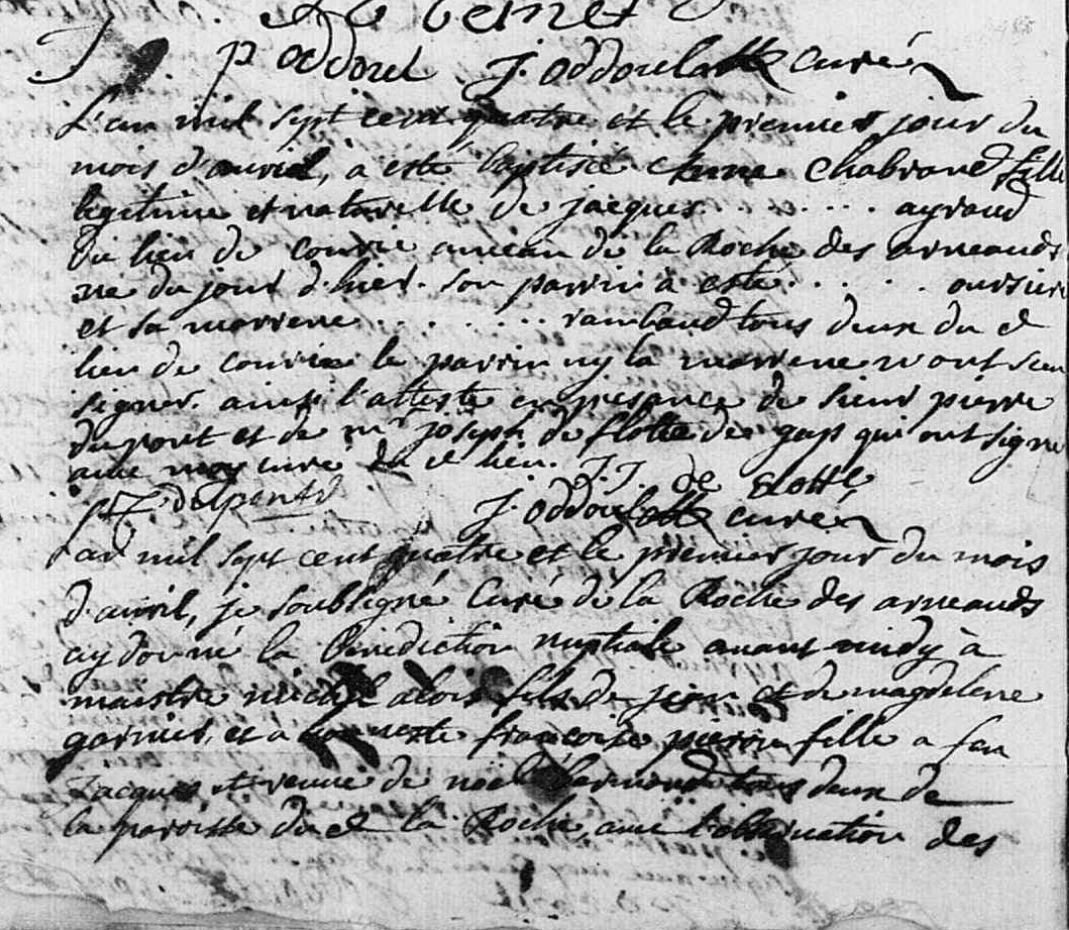 P oddoul J. oddoul curé
L'an mil sept cent quatre et le premier jour du
mois d'avril, a esté baptisée Anne Chabrand fille
legitime et naturelle de jacques . . . . . . . ayraud
du lieu de de la Roche des arneauds
née du jour d'hier. son parrin a esté . . . . .
et sa marrene . . . . . . . rambaud tous deux du d
lieu de le parrin ny la marrene n'ont sceu
signer. ainsi l'atteste en presance de sieur pierre
et de mr joseph de flotte de gap qui ont signé
avec moy curé du d lieu. J. J. de flotte
delponts J. oddoul curé
L'an mil sept cent quatre et le premier jour du mois
d'avril, je soubsigné Curé de la Roche des arneauds
ay donné la Benediction nuptiale avant midy à
maistre michel fils de jean et de magdelene
garnier, et a honneste françoise fille a feu
Jacques et veuve de noé tous deux de
la paroisse du d la Roche, avec des